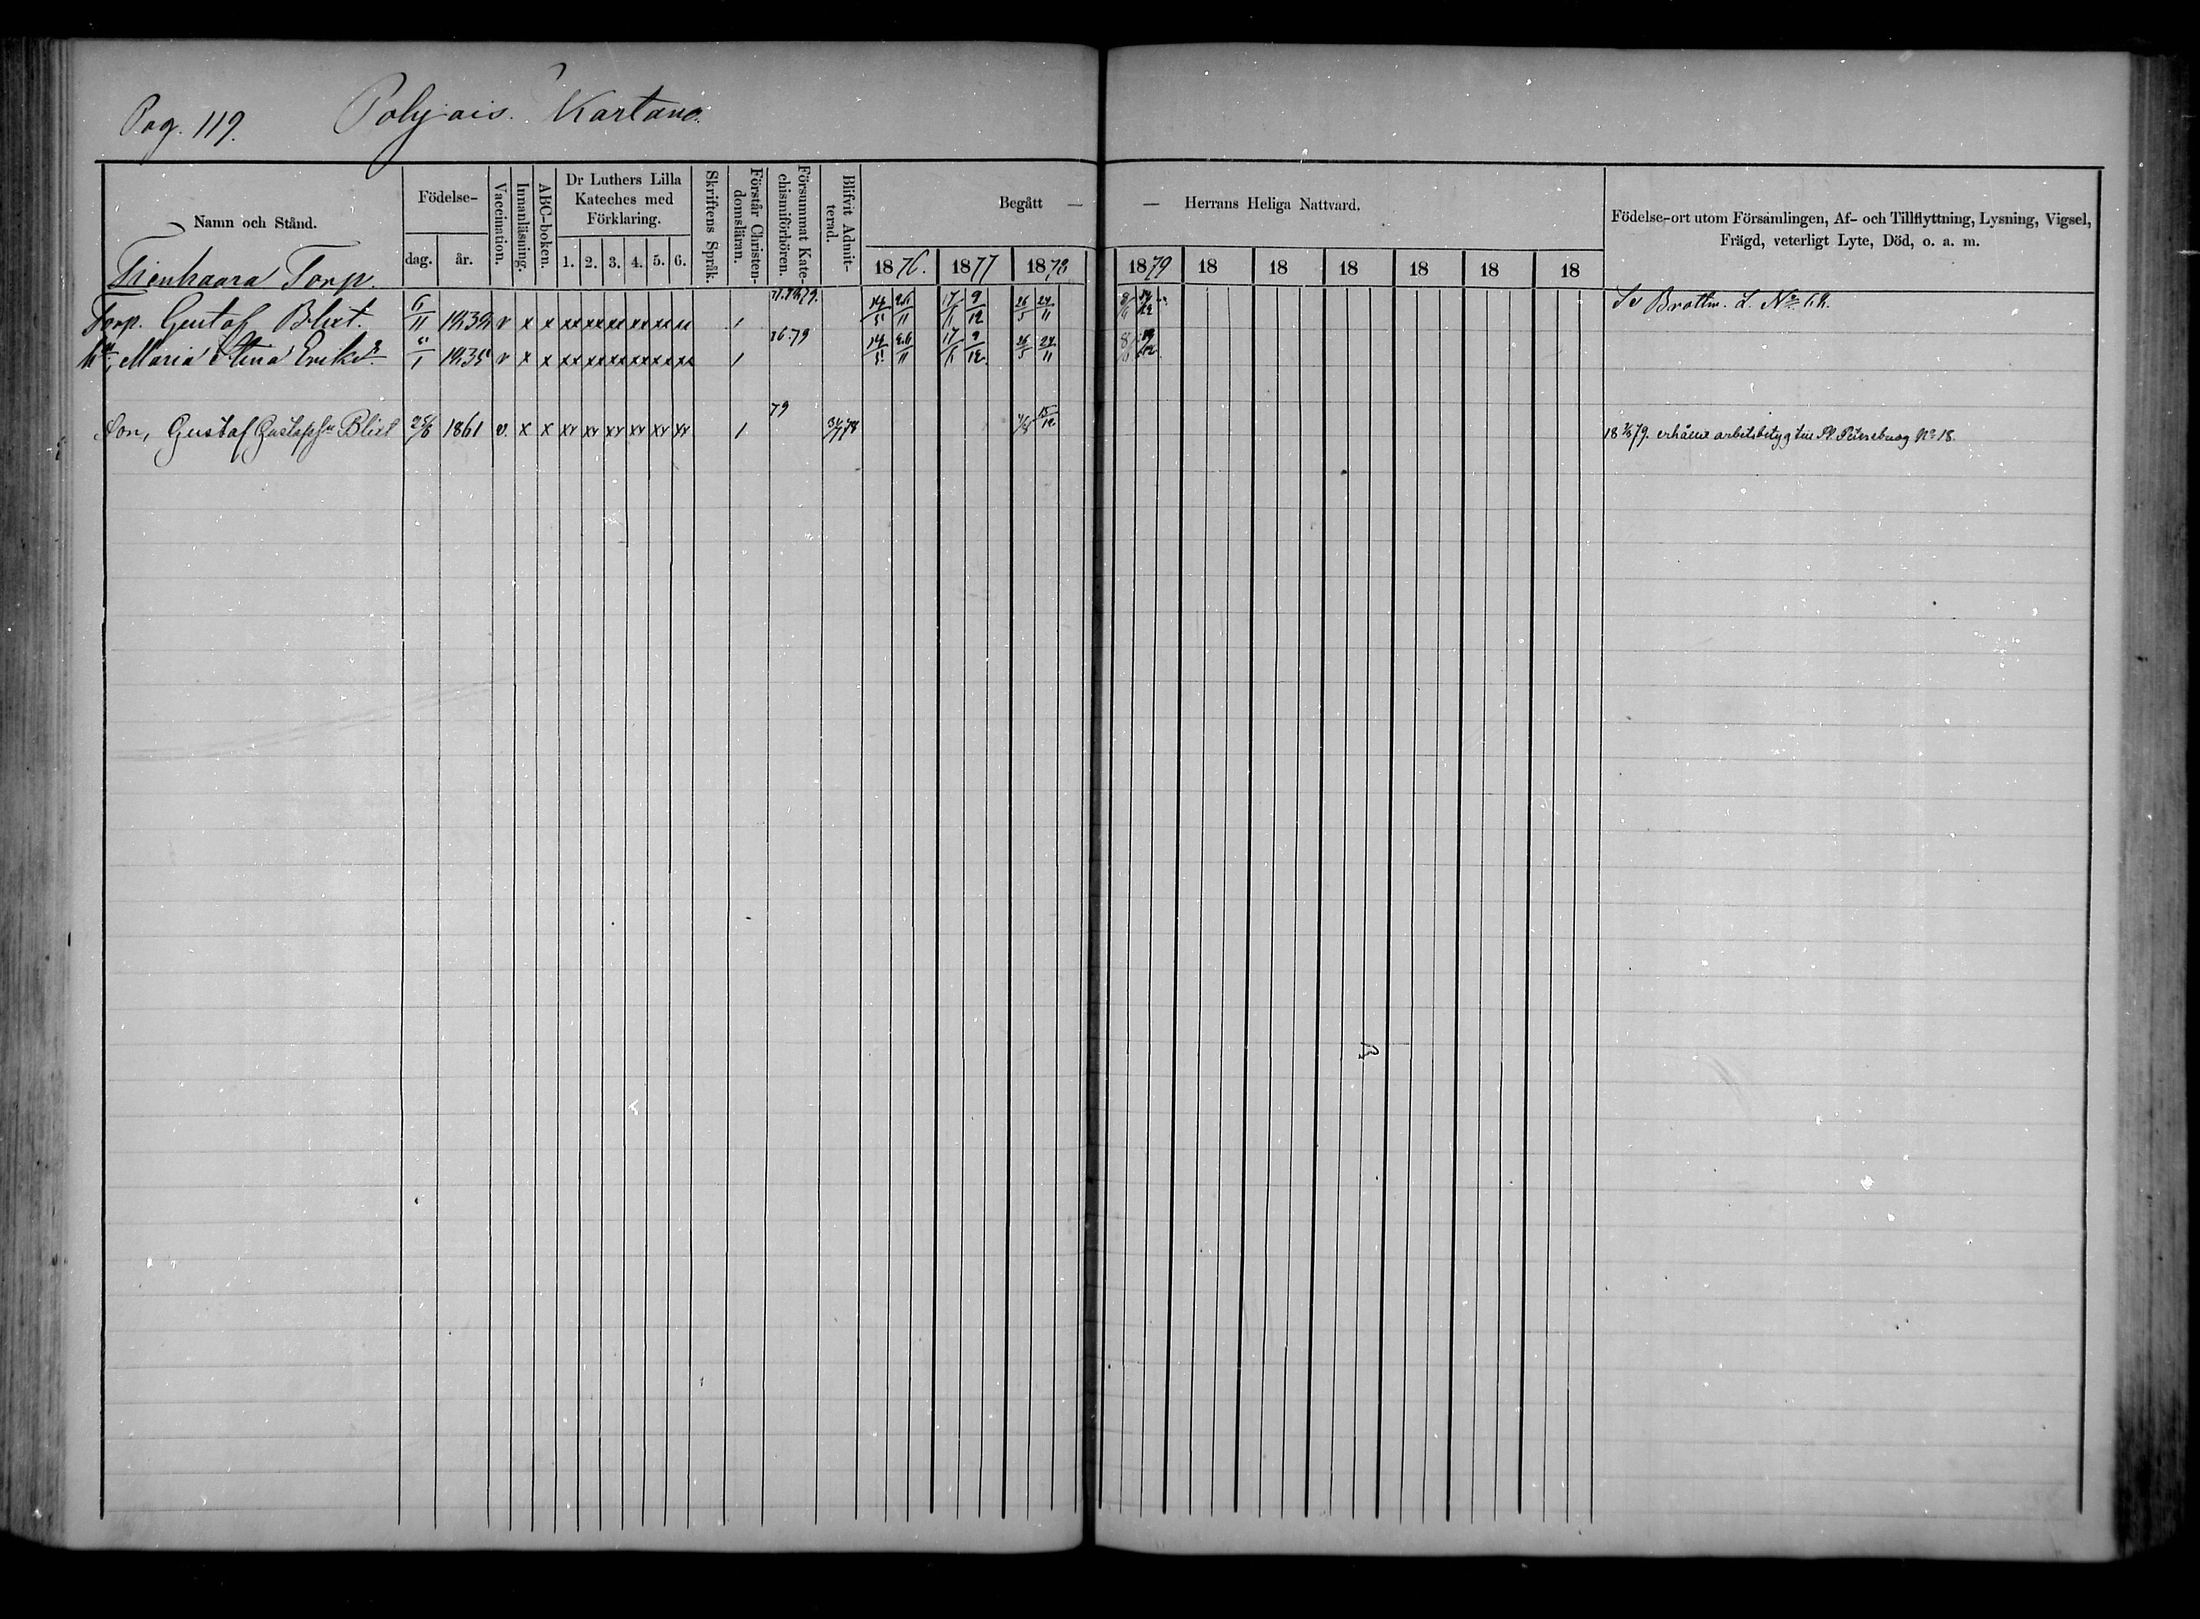 Pag. 119. Pohjois. Kartano.
Namn och Stånd. Födelse- Vaccination. Innanläsning. ABC-boken. Dr Luthers Lilla Kateches med Förklaring. Skriftens Språk. Förstår Christen-domsläran. Försummat Kate-chismiförhören. Blifvit Admit-terad. Begått — — Herrans Heliga Nattvard. Födelse-ort utom Församlingen, Af- och Tillflyttning, Lysning, Vigsel, Frägd, veterligt Lyte, Död, o. a. m.
dag. år. 1. 2. 3. 4. 5. 6. 1876. 1877 1878 1879 18 18 18 18 18 18
Tienhaara Torp.
Torp. Gustaf Blixt. 6/11 1839 v x x xx xx xx xx xx xx / 14/5 26/11 17/6 9/12 26/5 24/11 8/6 Se Brottm. L. No 68.
Hu, Maria Stina Eriksdr 1835 v x x xx xx xx xx xx xx / 76.79 14/5 26/11 17/6 9/12 26/5 24/11 8/6
Son, Gustaf Gustafsson Blixt 25/6 1861 v. x x xx xx xx xx xx xx / 79 15/12 79. erhållit arbetsbetyg till St. Petersburg No 18.